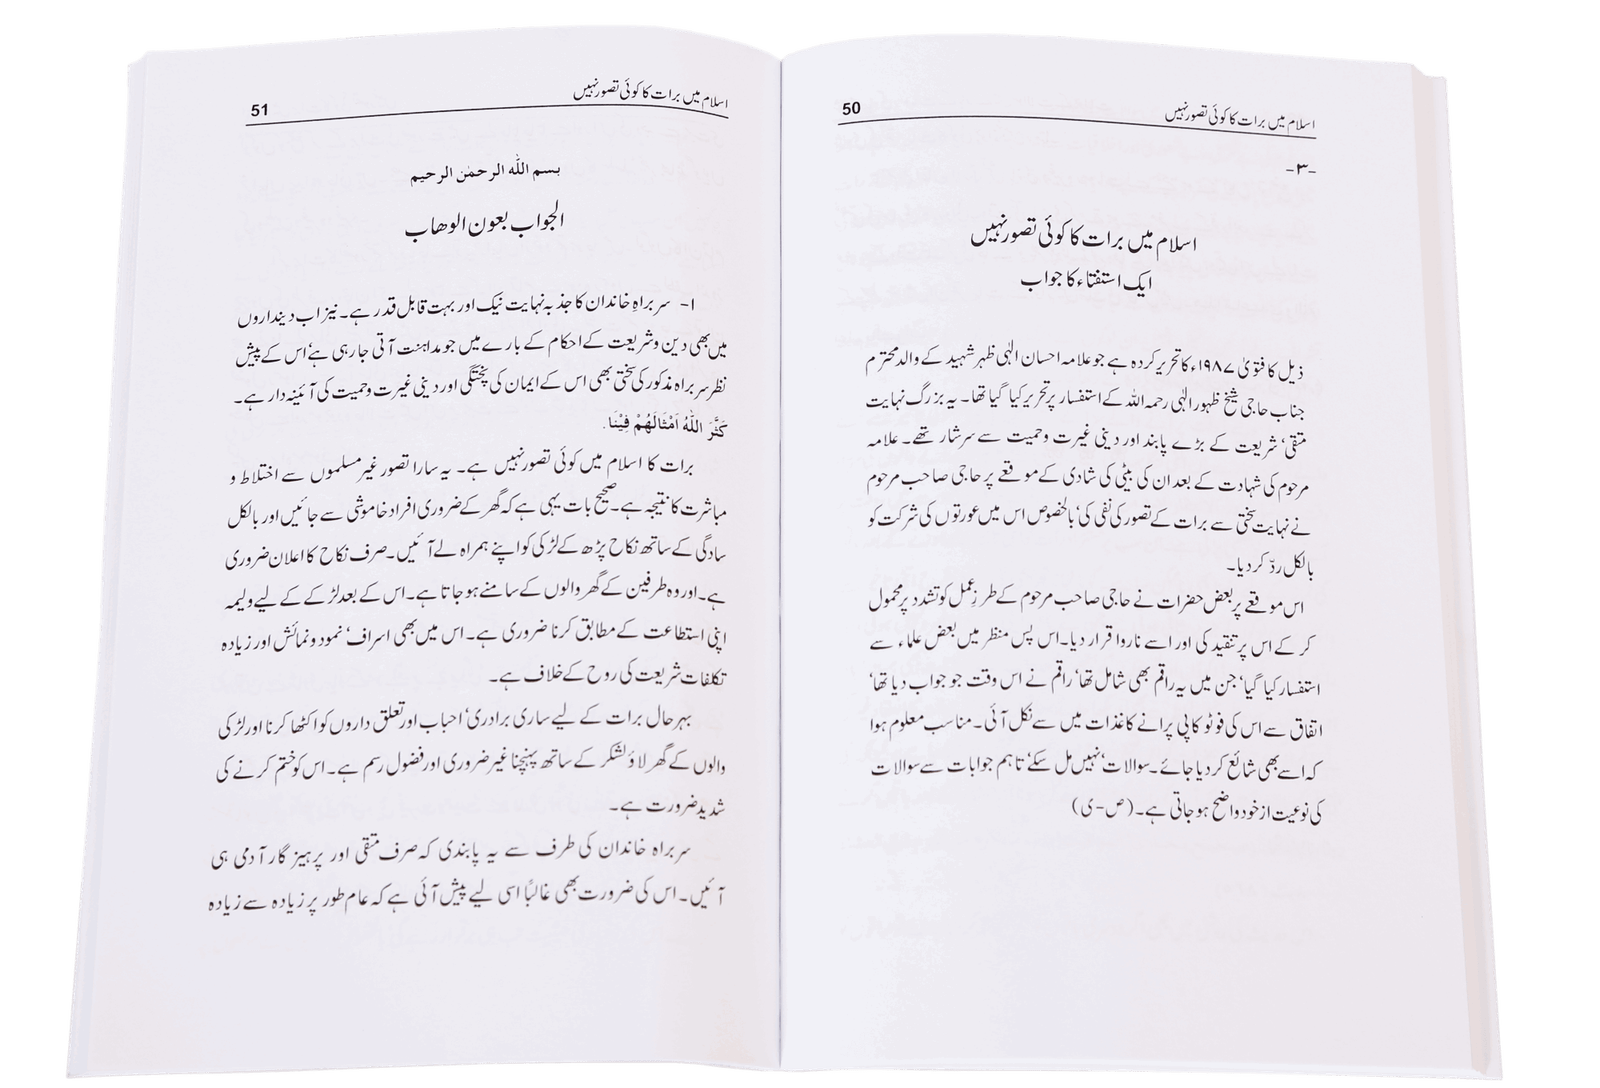 اسلام میں برات کا کوئی تصور نہیں 50
-۳-
اسلام میں برات کا کوئی تصور نہیں
ایک استفتاء کا جواب
ذیل کا فتویٰ ۱۹۸۷ء کا تحریر کردہ ہے جو علامہ احسان الٰہی ظہیر شہید کے والد محترم
جناب حاجی شیخ ظہور الٰہی رحمہ اللہ کے استفسار پر تحریر کیا گیا تھا۔ یہ بزرگ نہایت
متقی، شریعت کے بڑے پابند اور دینی غیرت و حمیت سے سرشار تھے۔ علامہ
مرحوم کی شہادت کے بعد ان کی بیٹی کی شادی کے موقعے پر حاجی صاحب مرحوم
نے نہایت سختی سے برات کے تصور کی نفی کی، بالخصوص اس میں عورتوں کی شرکت کو
بالکل ردّ کر دیا۔
اس موقعے پر بعض حضرات نے حاجی صاحب مرحوم کے طرزِ عمل کو تشدد پر محمول
کر کے اس پر تنقید کی اور اسے ناروا قرار دیا۔ اس پس منظر میں بعض علماء سے
استفسار کیا گیا، جن میں یہ راقم بھی شامل تھا، راقم نے اس وقت جو جواب دیا تھا،
اتفاق سے اس کی فوٹو کاپی پرانے کاغذات میں سے نکل آئی۔ مناسب معلوم ہوا
کہ اسے بھی شائع کر دیا جائے۔ سوالات، نہیں مل سکے، تاہم جوابات سے سوالات
کی نوعیت از خود واضح ہو جاتی ہے۔ (ص-ی)
اسلام میں برات کا کوئی تصور نہیں 51
بسم اللہ الرحمٰن الرحیم
الجواب بعون الوھاب
۱- سربراہِ خاندان کا جذبہ نہایت نیک اور بہت قابل قدر ہے۔ نیز اب دینداروں
میں بھی دین و شریعت کے احکام کے بارے میں جو مداہنت آتی جا رہی ہے، اس کے پیش
نظر سربراہ مذکور کی سختی بھی اس کے ایمان کی پختگی اور دینی غیرت و حمیت کی آئینہ دار ہے۔
كَثَّرَ اللّٰهُ اَمْثَالَهُمْ فِيْنَا.
برات کا اسلام میں کوئی تصور نہیں ہے۔ یہ سارا تصور غیر مسلموں سے اختلاط و
مباشرت کا نتیجہ ہے۔ صحیح بات یہی ہے کہ گھر کے ضروری افراد خاموشی سے جائیں اور بالکل
سادگی کے ساتھ نکاح پڑھ کے لڑکی کو اپنے ہمراہ لے آئیں۔ صرف نکاح کا اعلان ضروری
ہے۔ اور وہ طرفین کے گھر والوں کے سامنے ہو جاتا ہے۔ اس کے بعد لڑکے کے لیے ولیمہ
اپنی استطاعت کے مطابق کرنا ضروری ہے۔ اس میں بھی اسراف، نمود و نمائش اور زیادہ
تکلفات شریعت کی روح کے خلاف ہے۔
بہر حال برات کے لیے ساری برادری، احباب اور تعلق داروں کو اکٹھا کرنا اور لڑکی
والوں کے گھر لاؤ لشکر کے ساتھ پہنچنا غیر ضروری اور فضول رسم ہے۔ اس کو ختم کرنے کی
شدید ضرورت ہے۔
سربراہ خاندان کی طرف سے یہ پابندی کہ صرف متقی اور پرہیز گار آدمی ہی
آئیں۔ اس کی ضرورت بھی غالباً اسی لیے پیش آئی ہے کہ عام طور پر زیادہ سے زیادہ